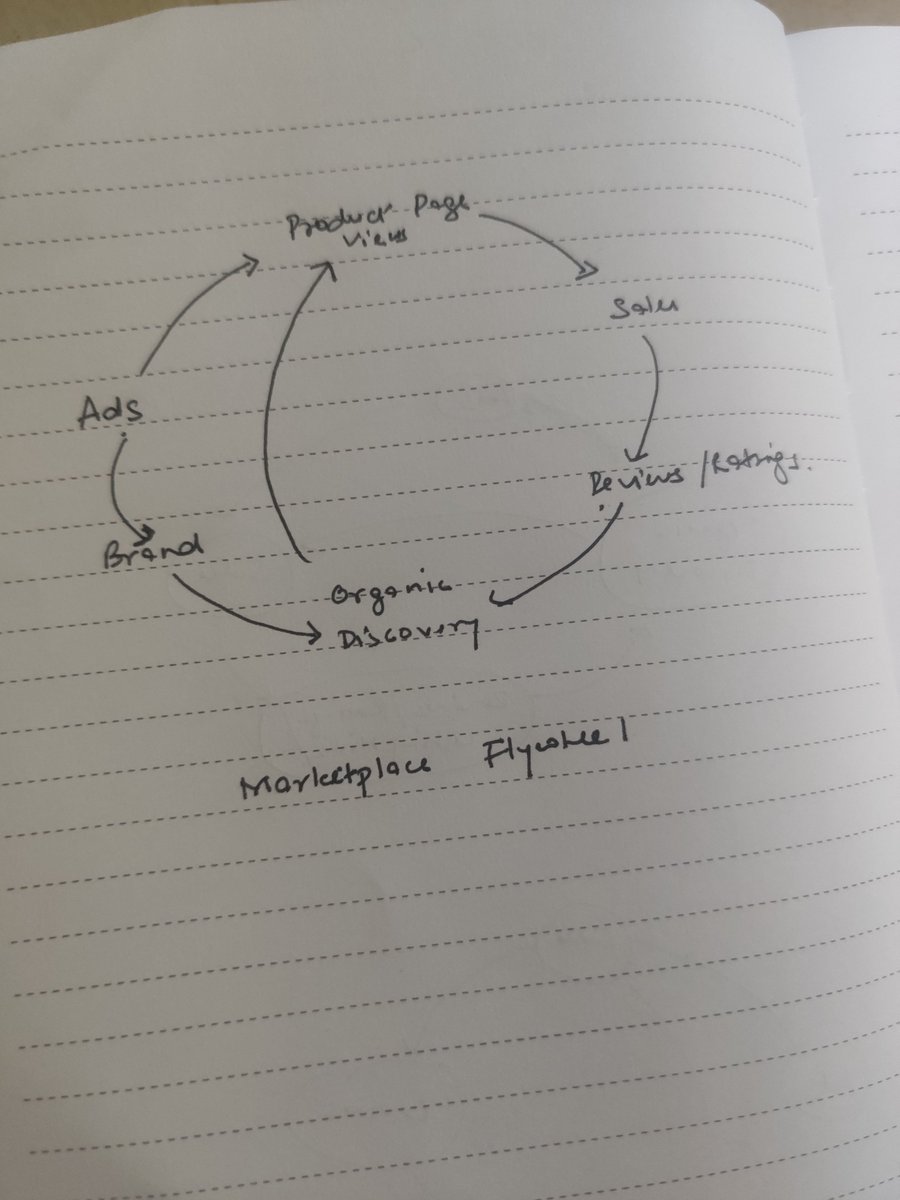 Product Page
Views
Sales
Ads
Reviews /Ratings.
Brand
Organic
Discovery
Marketplace Flywheel